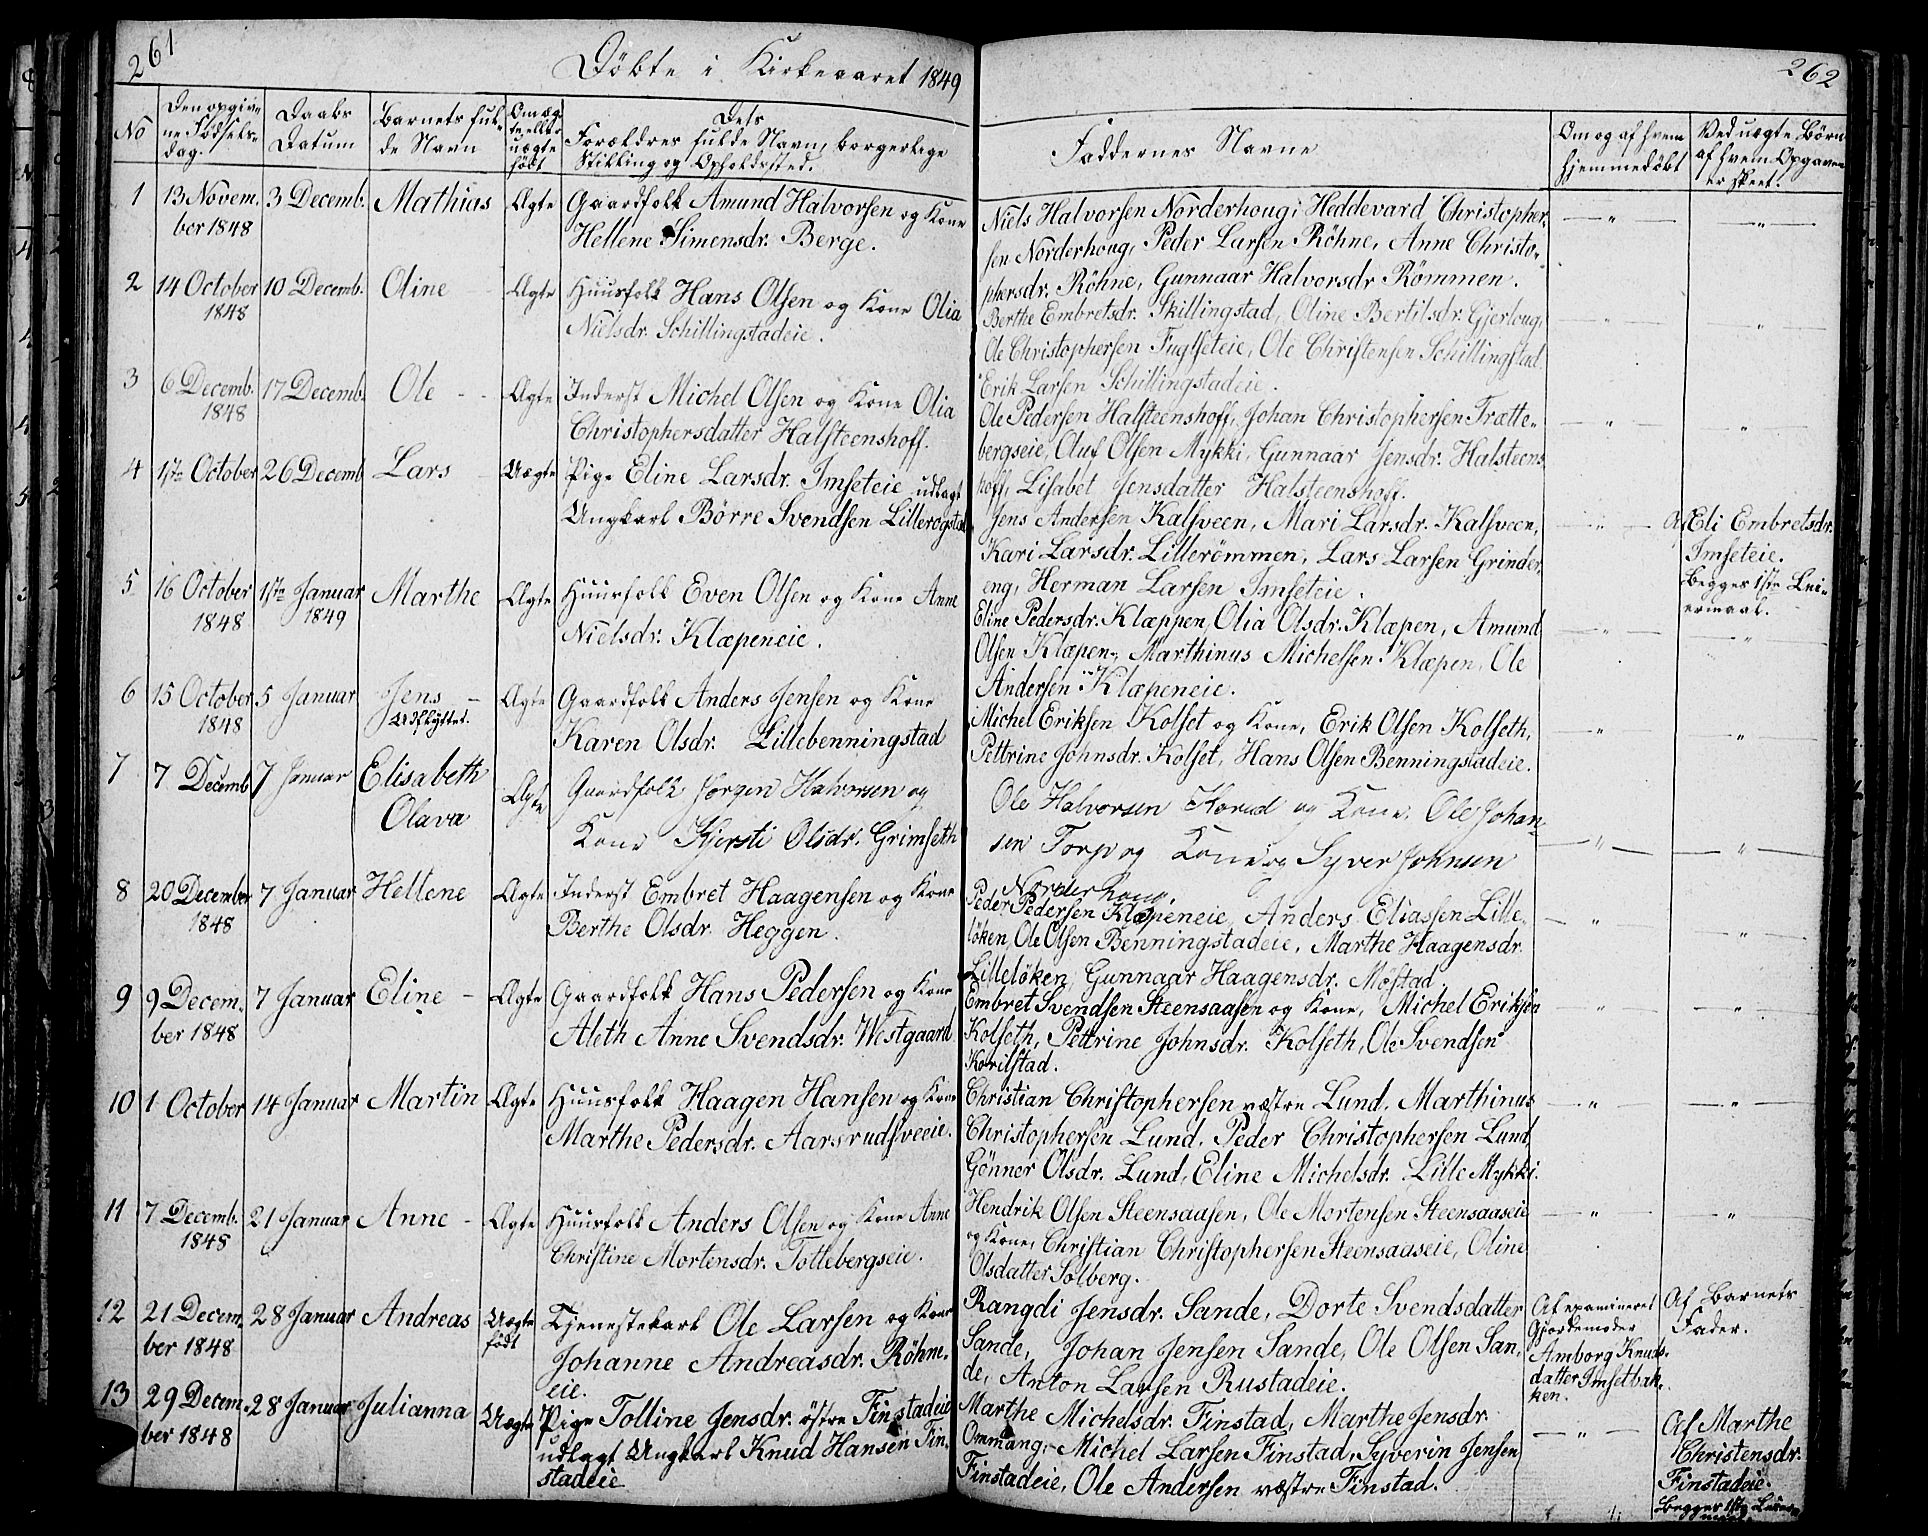 261
Döbte i Kirkeaaret 1849
No
Den opgiv-
ne Födsels-
dag.
Daabs
Datum
Barnets ful-
de Navn
Om æg-
te eller
uægte
födt
Dets
Forældres fulde Navn, borgerlige
Stilling og Opholdssted.
1 13 Novem- 3 Decemb. Mathias Ægte Gaardfolk Amund Halvorsen og Kone
ber 1848 Hellene Simensdr. Berge.
2 14 October 10 Decemb. Oline Ægte Huusfolk Hans Olsen og Kone Olia
1848 Nielsdr. Schillingstadeie.
3 6 Decemb. 17 Decemb. Ole Ægte Inderst Michel Olsen og Kone Olia
1848 Christophersdatter Halsteenshoff.
4 1ste October 26 Decemb Lars Uægte Pige Eline Larsdr. Imseteie udlagt
Ungkarl Börre Svendsen Lillerogstad
5 16 October 1ste Januar Marthe Ægte Huusfolk Even Olsen og Kone Anne
1848 1849 Nielsdr. Klæpeneie.
6 15 October 5 Januar Jens Ægte Gaardfolk Anders Jensen og Kone
1848 Udflyttet. Karen Olsdr. Lillebenningstad
7 7 Decemb 7 Januar Elisabeth Ægte Gaardfolk Jörgen Halvorsen og
Olava Kone Kjersti Olsdr. Grimseth
8 20 December 7 Januar Hellene Ægte Inderst Embret Haagensen og Kone
1848 Berthe Olsdr. Heggen.
9 9 Decem- 7 Januar Eline Ægte Gaardfolk Hans Pedersen og Kone
ber 1848 Aleth Anne Svendsdr. Westgaard
10 1 October 14 Januar Martin Ægte Huusfolk Haagen Hansen og Kone
Marthe Pedersdr. Aarsrudsveeie.
11 7 Decemb. 21 Januar Anne Ægte Huusfolk Anders Olsen og Kone Anne
1848 Christine Mortensdr. Tottebergseie.
12 21 Decem- 28 Januar Andreas Uægte Tjenestekarl Ole Larsen og Kone
ber 1848 födt Johanne Andreasdr. Röhne-
eie.
13 29 Decem- 28 Januar Julianna Uægte Pige Tolline Jensdr. östre Finstadeie
ber 1848 udlagt Ungkarl Knud Hansen Fin-
stadeie
262
Faddernes Navne
Om og af hvem
hjemmedöbt
Ved uægte Börn
af hvem Opgaven
er skeet.
Niels Halvorsen Norderhoug, Heddevard Christopher-
sen Norderhoug, Peder Larsen Röhne, Anne Christo-
phersdr. Röhne, Gunnaar Halvorsdr Römmen.
Berthe Embretsdr. Skillingstad, Oline Bertilsdr. Gjerloug,
Ole Christophersen Fuglseteie, Ole Christensen Schillingstad
Erik Larsen Schillingstadeie.
Ole Pedersen Halsteenshoff, Johan Christophersen Trætte-
bergseie, Oluf Olsen Mykki, Gunnaar Jensdr. Halsteens-
hoff, Lisabet Jensdatter Halsteenshoff.
Jens Andersen Kalsveen, Mari Larsdr. Kalsveen, Af Eli Embretsdr.
Kari Larsdr. Lillerömmen, Lars Larsen Grinder- Imseteie.
eng, Herman Larsen Imseteie. Begges 1ste Lei-
ermaal.
Eline Pedersdr. Klæppen, Olia Olsdr. Klæpen, Amund
Olsen Klæpen, Marthinus Michelsen Klæpen, Ole
Andersen Klæpeneie.
Michel Eriksen Kolset og Kone, Erik Olsen Kolseth,
Pettrine Johnsdr. Kolset, Hans Olsen Benningstadeie.
Ole Halvorsen Korud og Kone, Ole Johan-
sen Torp og Kone og Syver Johnsen
Norderhoug.
Peder Pedersen Klæpeneie, Anders Eliassen Lille-
löken, Ole Olsen Benningstadeie, Marthe Haagensdr.
Lillelöken, Gunnaar Haagensdr. Möstad
Embret Svendsen Steensaasen og Kone, Michel Eriksen
Kolseth, Pettrine Johnsdr. Kolseth, Ole Svendsen
Korilstad.
Christian Christophersen væstre Lund, Marthinus
Christophersen Lund, Peder Christophersen Lund
Gönner Olsdr. Lund, Eline Michelsdr. Lille Mykki.
Hendrik Olsen Steensaasen, Ole Mortensen Steensaaseie
og Kone, Christian Christophersen Steensaaseie, Oline
Olsdatter Solberg.
Rangdi Jensdr. Sande, Dorte Svendsdatter Af examineret Af Barnets
Sande, Johan Jensen Sande, Ole Olsen San- Gjordemoder Fader.
de, Anton Larsen Rustadeie. Amborg Knuds-
datter Imsetbak-
ken.
Marthe Michelsdr. Finstad, Marthe Jensdr. Af Marthe
Ommang, Michel Larsen Finstad, Syverin Jensen Christensdr.
Finstadeie, Ole Andersen væstre Finstad. Finstadeie.
Begges 1ste Leier-
maal.